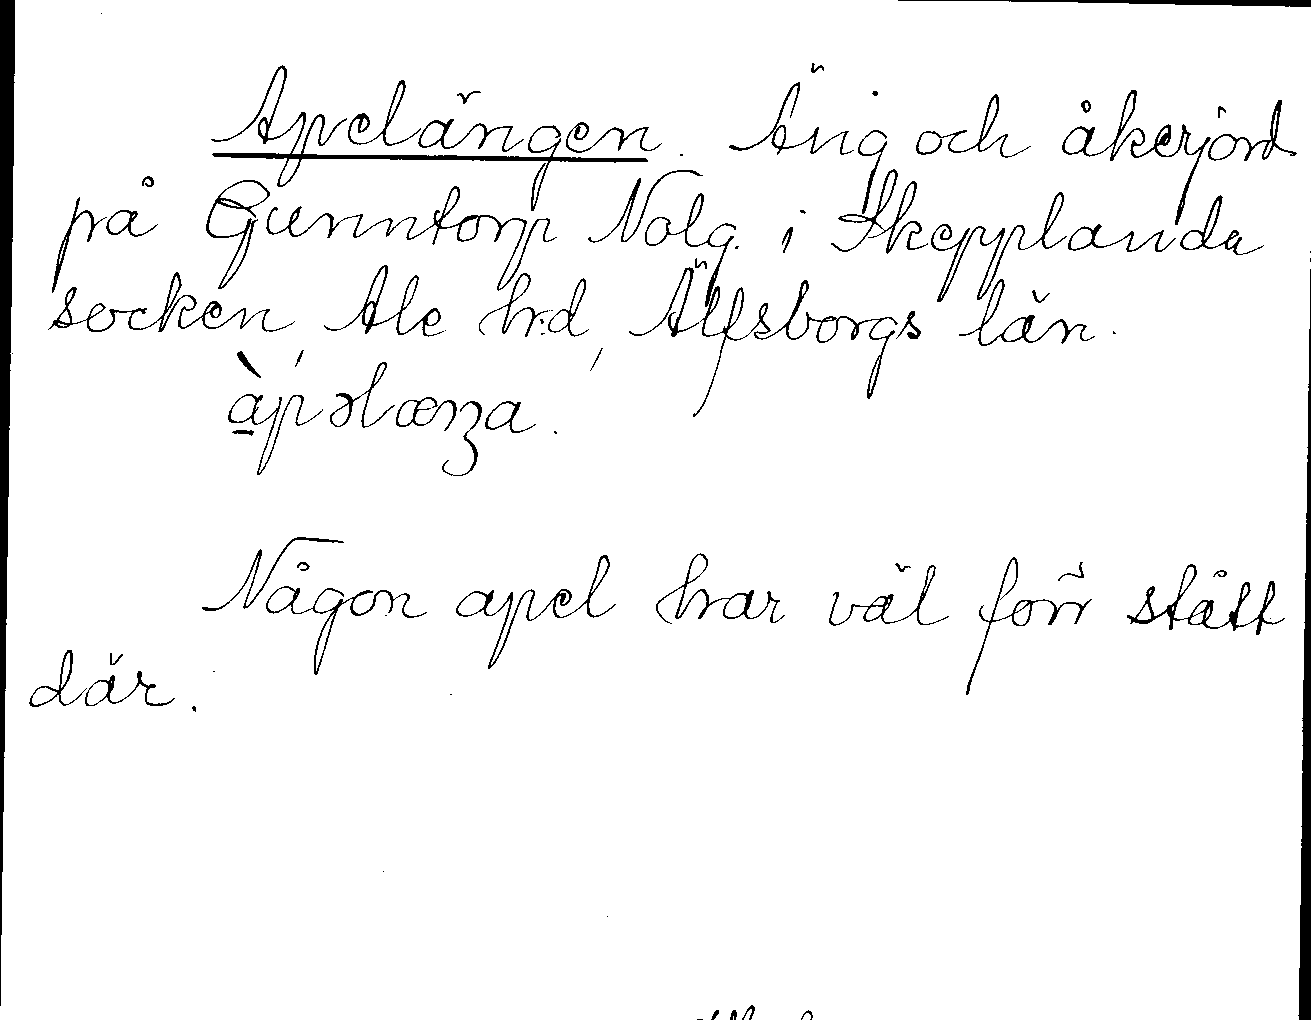 Apelängen. Äng och åkerjord
på Gunntorp Nolg. i Skepplanda
socken, Ale hd, Älfsborgs län.
à̱pəlæŋa.
Någon apel har väl förr stått
där.